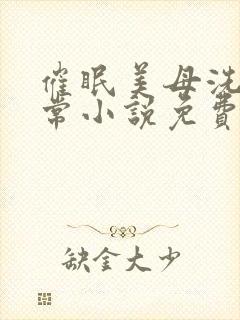 催眠美母洗
常小说免費
缺金大少